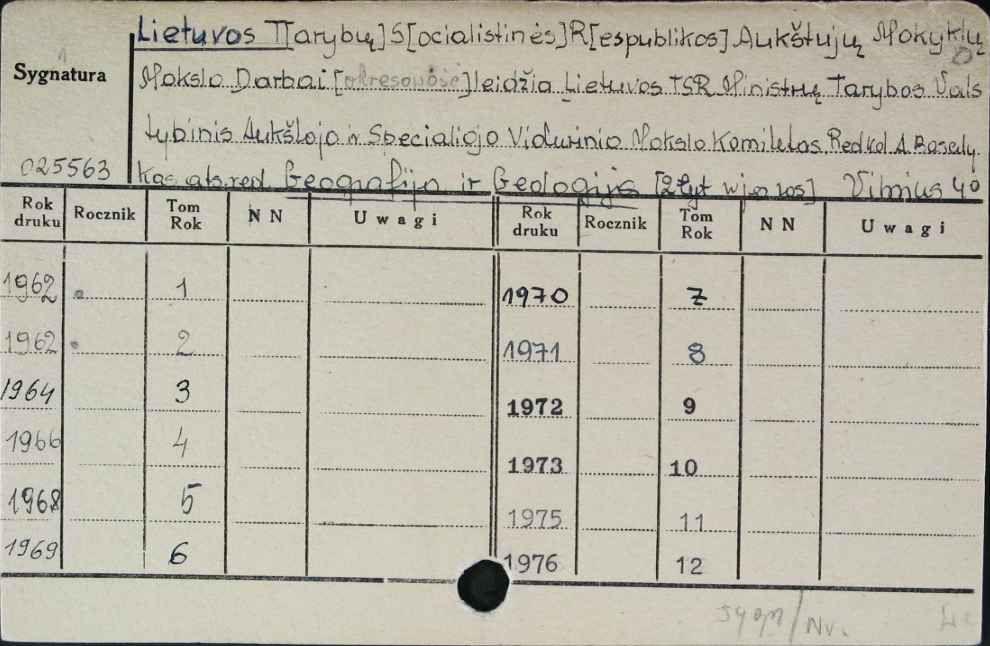 Lietuvos T[arybų] S[ocialistinės] R[espublikos] Aukštųjų Mokyklų
Sygnatura
Mokslo Darbai [okresowość] leidžia Lietuvos TSR Ministrų Tarybos Vals
tybinis Aukštojo ir Specialiojo Vidurinio Mokslo Komitetas. Red kol A. Basaly
025563
kas ats. red. Geografija ir Geologija Vilnius 40
Rok druku Rocznik Tom Rok N N Uwagi Rok druku Rocznik Tom Rok N N Uwagi
1962 1 1970 7
1962 2 1971 8
1964 3 1972 9
1966 4 1973 10
1968 5 1975 11
1969 6 1976 12